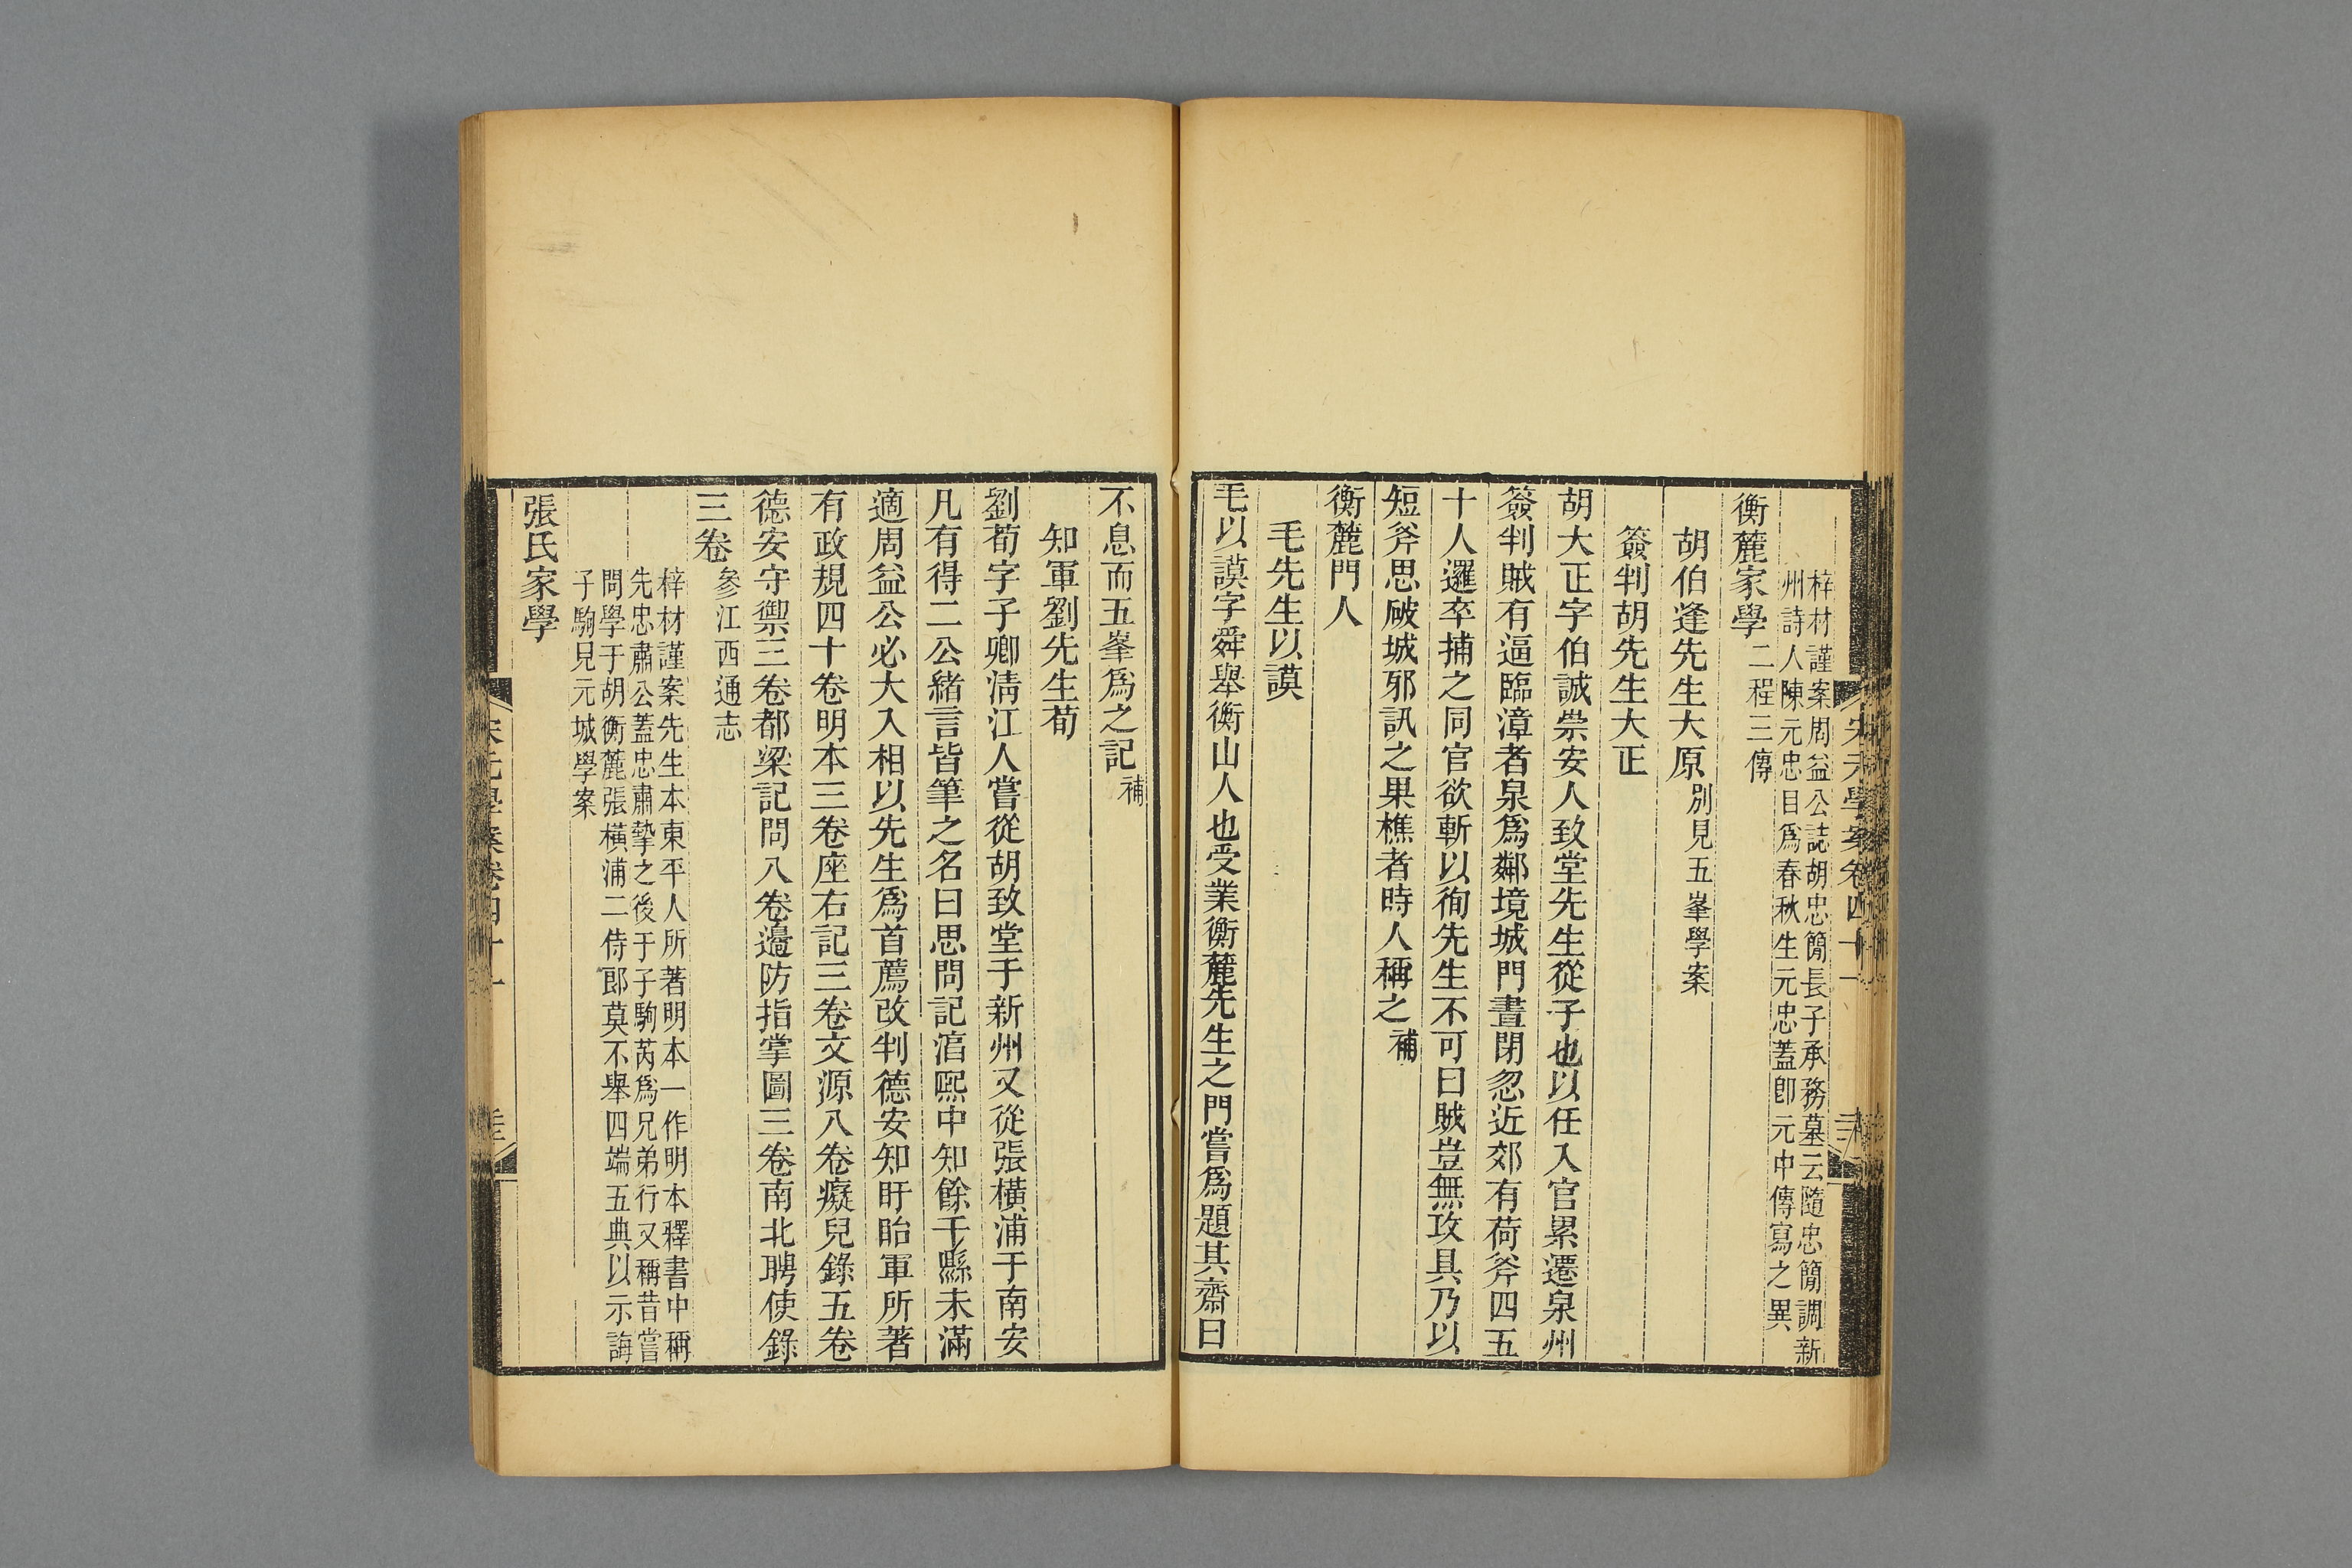 宋元學案卷四十一
梓材謹案周益公誌胡忠簡長子承務墓云隨忠簡調新
州詩人陳元忠目爲春秋生元忠蓋卽元中傳寫之異
衡麓家學二程三傳
胡伯逢先生大原別見五峯學案
簽判胡先生大正
胡大正字伯誠崇安人致堂先生從子也以任入官累遷泉州
簽判賊有逼臨漳者泉爲鄰境城門晝閉忽近郊有荷斧四五
十人邏卒捕之同官欲斬以徇先生不可曰賊豈無攻具乃以
短斧思破城邪訊之果樵者時人稱之補
衡麓門人
毛先生以謨
毛以謨字舜舉衡山人也受業衡麓先生之門嘗爲題其齋曰
不息而五峯爲之記補
知軍劉先生荀
劉荀字子卿淸江人嘗從胡致堂于新州又從張橫浦于南安
凡有得二公緒言皆筆之名曰思問記湻熙中知餘干縣未滿
適周益公必大入相以先生爲首薦改判德安知盱眙軍所著
有政規四十卷明本三卷座右記三卷文源八卷癡兒錄五卷
德安守禦三卷都梁記問八卷邊防指掌圖三卷南北聘使錄
三卷參江西通志
梓材謹案先生本東平人所著明本一作明本釋書中稱
先忠肅公蓋忠肅摯之後于子駒芮爲兄弟行又稱昔嘗
問學于胡衡麓張橫浦二侍郎莫不舉四端五典以示誨
子駒見元城學案
張氏家學
宋元學案卷四十一